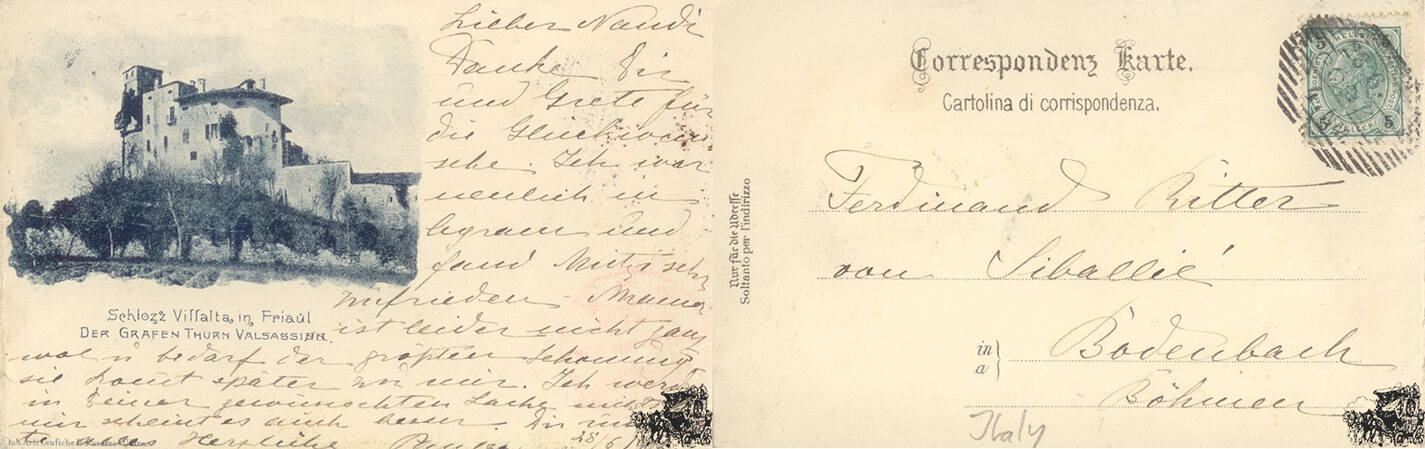 Lieber Nandi
Danke Dir
und Grete für
die Glückwün
sche. Ich war
neulich in
Agram und
fand Mitzi sehr
zufrieden. Mama
ist leider nicht ganz
wol u bedarf der größten Schonung
sie kommt später zu mir. Ich
in Deiner gewünschten Sache
mir scheint es auch besser. Du
Herzliche
28/6
Schlozz Villalta in Friaul
DER GRAFEN THURN VALSASSINA.
Correspondenz Karte.
Cartolina di corrispondenza.
Nur für die Adresse
Soltanto per l'indirizzo
5
5 5
Ferdinand Ritter
von Siballié
in
a
Bodenbach
Böhmen
Italy